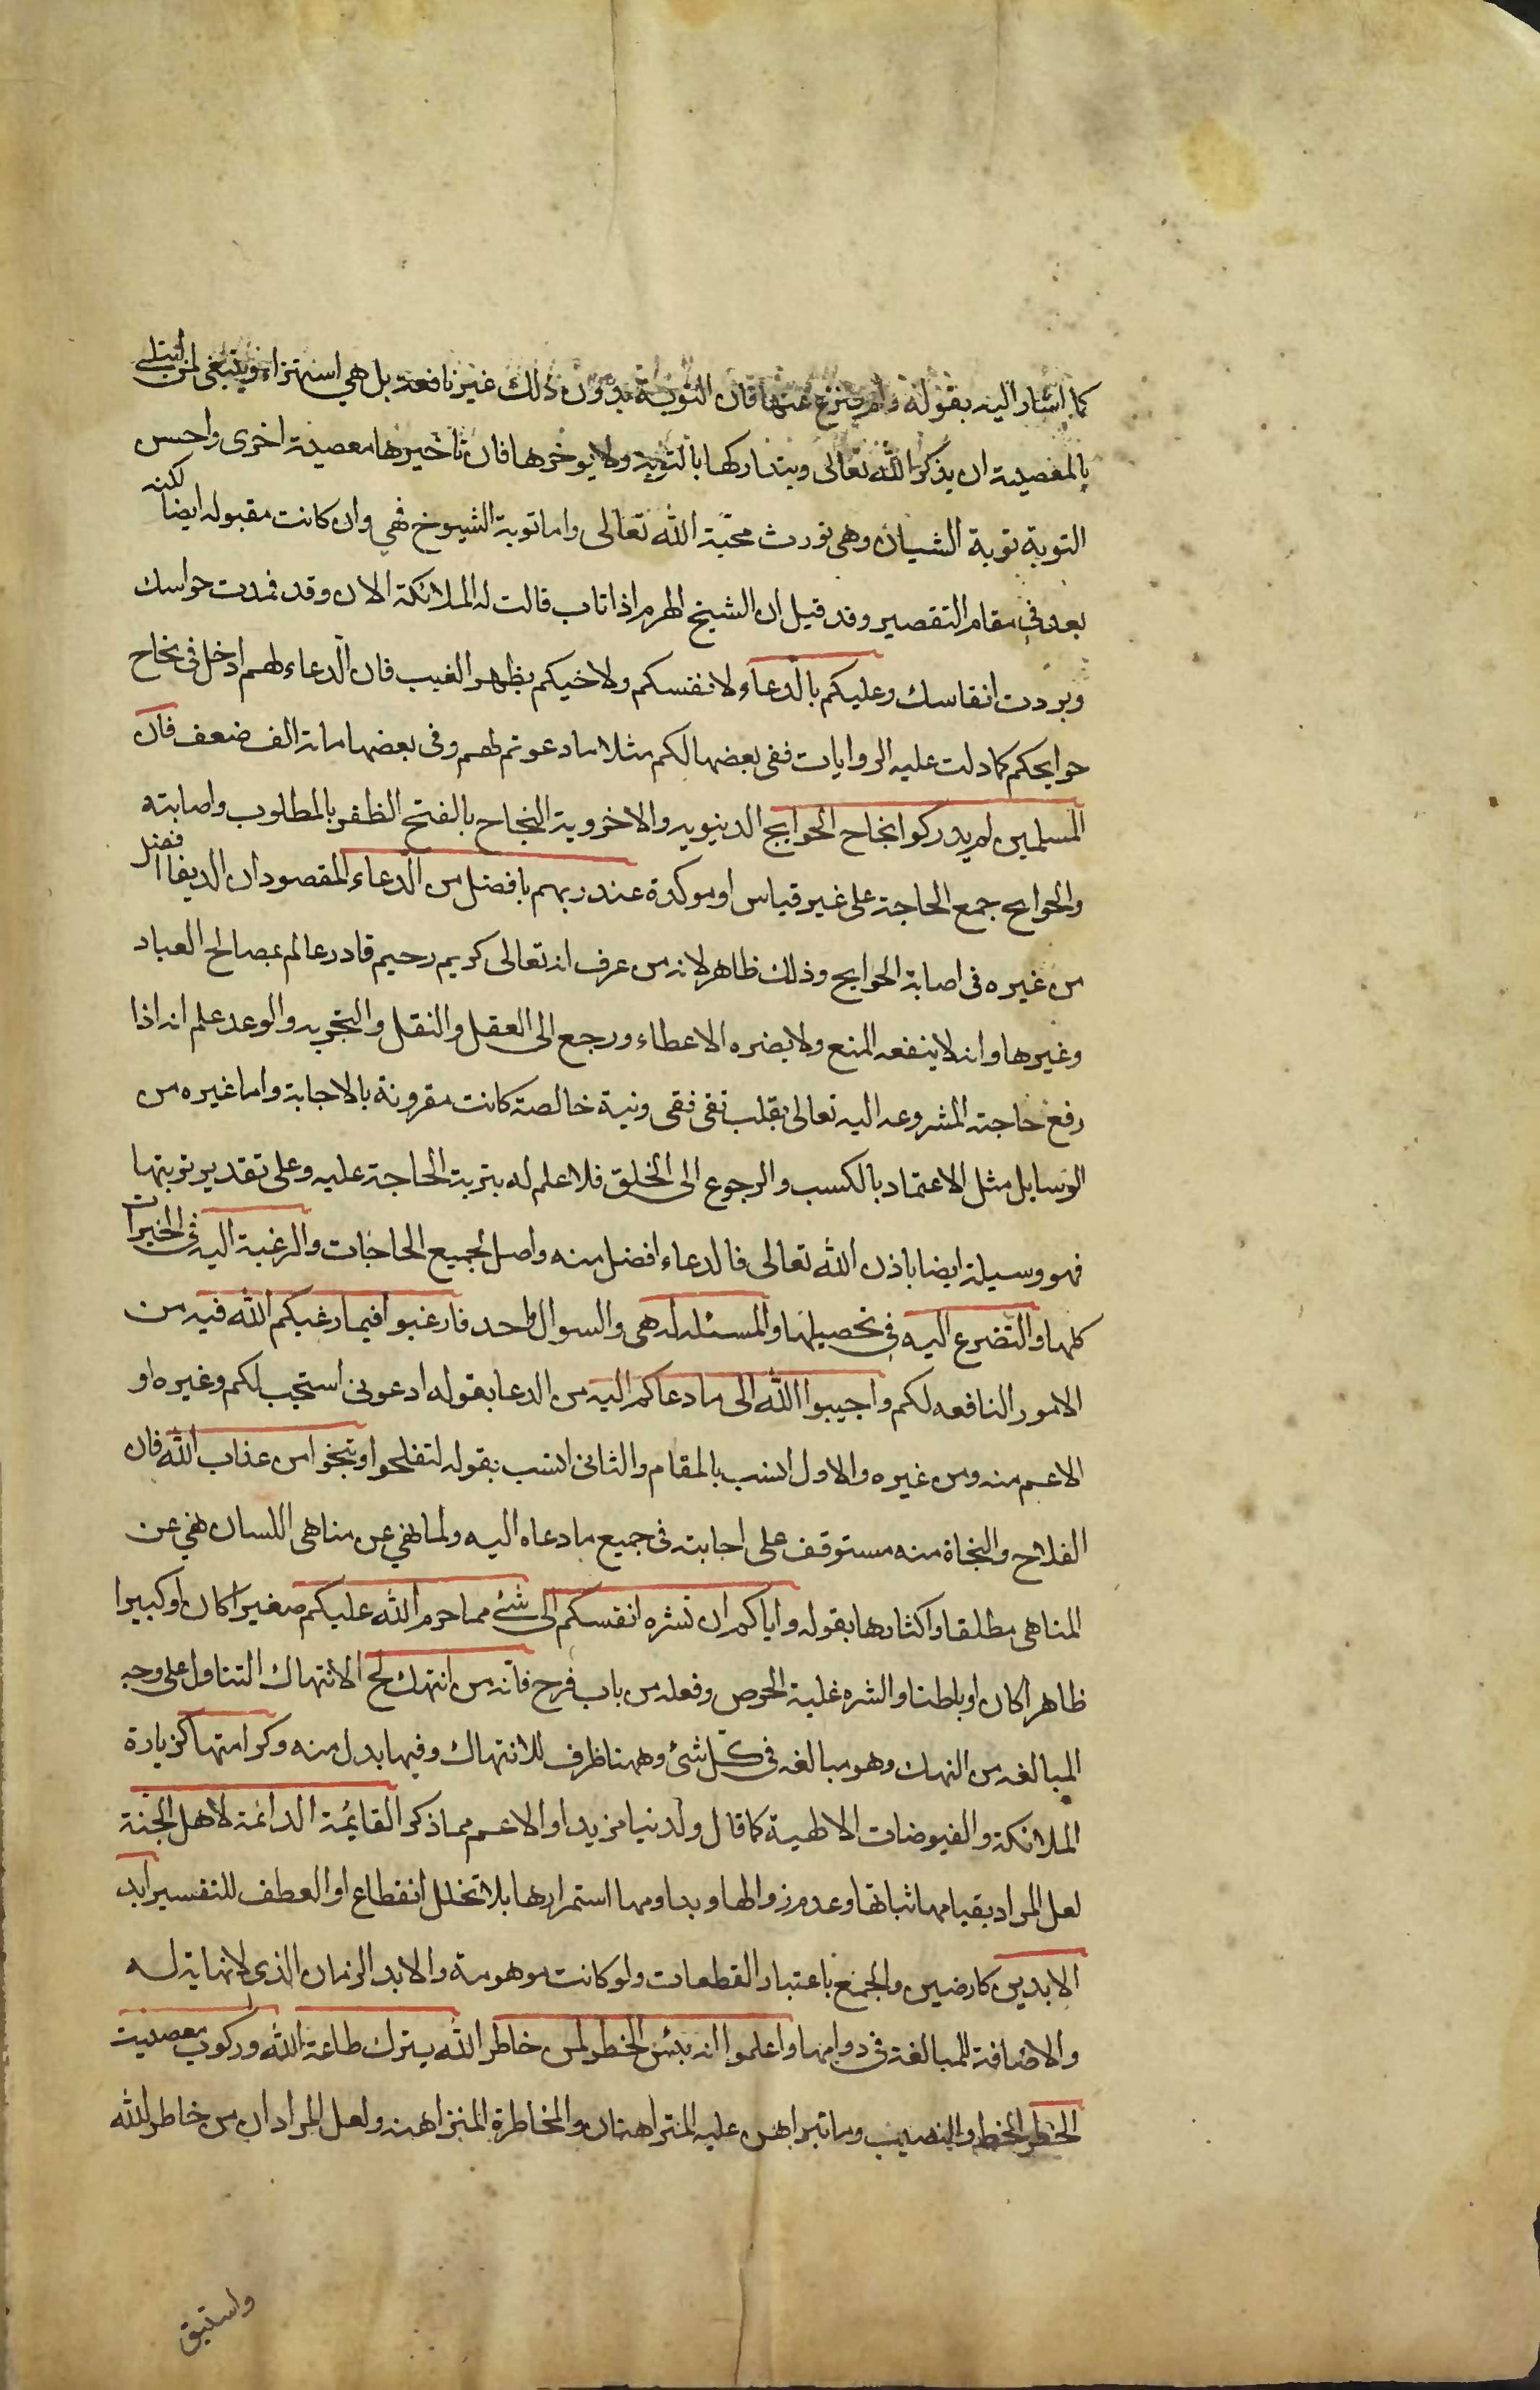 كما اشار اليه بقوله ولم ينزع عنها فان التوبة بدون ذلك غير نافعة بل هي استهزاء وينبغي لمن ابتلى
بالمعصية ان يذكر الله تعالى ويتداركها بالتوبة ولا يوخرها فان تاخيرها معصية اخرى واحسن
التوبة توبة الشبان وهي تورث محبّة الله تعالى واما توبة الشيوخ فهي وان كانت مقبوله ايضا لكنه
بعد في مقام التقصير وقد قيل ان الشيخ الهرم اذا تاب قالت له الملائكة الان وقد خمدت حواسك
وبردت انفاسك وعليكم بالدعاء لانفسكم ولاخيكم بظهر الغيب فان الدعاء لهم ادخل في نجاح
حوايجكم كما دلت عليه الروايات ففي بعضها لكم مثلا ما دعوتم لهم وفي بعضها مائة الف ضعف فان
المسلمين لم يدركوا انجاح الحوايج الدينويه والاخروية النجاح بالفتح الظفر بالمطلوب واصابته
والحوايج جمع الحاجة على غير قياس او موكدة عند ربهم بافضل من الدعاء المقصود ان الدعا افضل
من غيره في اصابة الحوايج وذلك ظاهر لانه من عرف انه تعالى كريم رحيم قادر عالم بمصالح العباد
وغيرها وانه لا ينفعه المنع ولا يضره الاعطاء ورجع الى العقل والنقل والتجربه والوعد علم انه اذا
رفع حاجته المشروعه اليه تعالى بقلب تقي نقي ونية خالصة كانت مقرونة بالاجابة واما غيره من
الوسايل مثل الاعتماد بالكسب والرجوع الى الخلق فلا علم له بترتب الحاجة عليه وعلى تقدير ترتبها
فهو وسيلة ايضا باذن الله تعالى فالدعاء افضل منه واصل لجميع الحاجات والرغبة اليه في الخيرات
كلها والتضرع اليه في تحصيلها والمسئلة له هي والسوال واحد فارغبوا فيما رغبكم الله فيه من
الامور النافعه لكم واجيبوا الله الى ما دعاكم اليه من الدعا بقوله ادعوني استجب لكم وغيره او
الاعم منه ومن غيره والاول انسب بالمقام والثاني انسب بقوله لتفلحوا وتنجوا من عذاب الله فان
الفلاح والنجاة منه مستوقف على اجابته في جميع ما دعاه اليه ولما نهي عن مناهي اللسان نهي عن
المناهي مطلقا واكثارها بقوله واياكم ان تشره انفسكم الى شئ مما حرم الله عليكم صغيرا كان او كبيرا
ظاهرا كان او باطنا والشره غلبة الحرص وفعله من باب فرح فانه من انتهك الخ الانتهاك التناول على وجه
المبالغه من النهك وهو مبالغه في كل شئ وههنا ظرف للانتهاك وفيها بدل منه وكرامتها كزيارة
الملائكة والفيوضات الالهية كما قال ولدنيا مزيد او الاعم مما ذكر القايمة الدائمة لاهل الجنة
لعل المراد بقيامها ثباتها وعدم زوالها وبداومها استمرارها بلا تخلل انقطاع او العطف للتفسير ابد
الابدين كارضين والجمع باعتبار القطعات ولو كانت موهومة والابد الزمان الذي لا نهاية له
والاضافة للمبالغة في دوامها واعلموا انه بئس الخطر لمن خاطر الله بترك طاعة الله وركوب معصيت
الخطر الخط والنصيب وما تبراهن عليه المتراهنان والمخاطرة المنزاهنه ولعل المراد ان من خاطر الله
واستبق